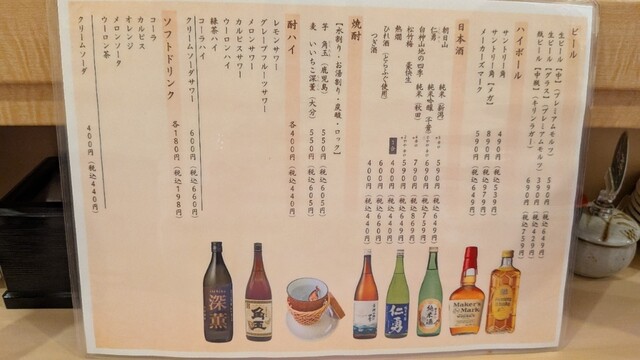 ビール
生ビール【中】(プレミアムモルツ) 590円(税込649円)
生ビール【グラス】(プレミアムモルツ) 390円(税込429円)
瓶ビール【中瓶】(キリンラガー) 690円(税込759円)
ハイボール
サントリー角 490円(税込539円)
サントリー角【メガ】 890円(税込979円)
メーカーズマーク 590円(税込649円)
日本酒
朝日山 純米(新潟) 590円(税込649円)
仁勇 純米吟醸(千葉) 690円(税込759円)
白神山地の四季 純米(秋田) 790円(税込869円)
松竹梅 豪快生 590円(税込649円)
熱燗 400円(税込440円)
ひれ酒(とらふぐ使用) 600円(税込660円)
つぎ酒 400円(税込440円)
焼酎
【水割り・お湯割り・炭酸・ロック】
芋 角玉(鹿児島) 550円(税込605円)
麦 いいちこ深薫(大分) 550円(税込605円)
酎ハイ 各400円(税込440円)
レモンサワー
グレープフルーツサワー
メロンサワー
カルピスサワー
ウーロンハイ
緑茶ハイ
コーラハイ
クリームソーダサワー 600円(税込660円)
ソフトドリンク 各180円(税込198円)
コーラ
カルピス
オレンジ
メロンソーダ
ウーロン茶
クリームソーダ 400円(税込440円)
深薫
角玉
仁勇
純米酒
Maker's
Mark